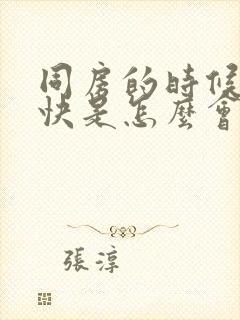 同房的時候
快是怎麼會
張淳